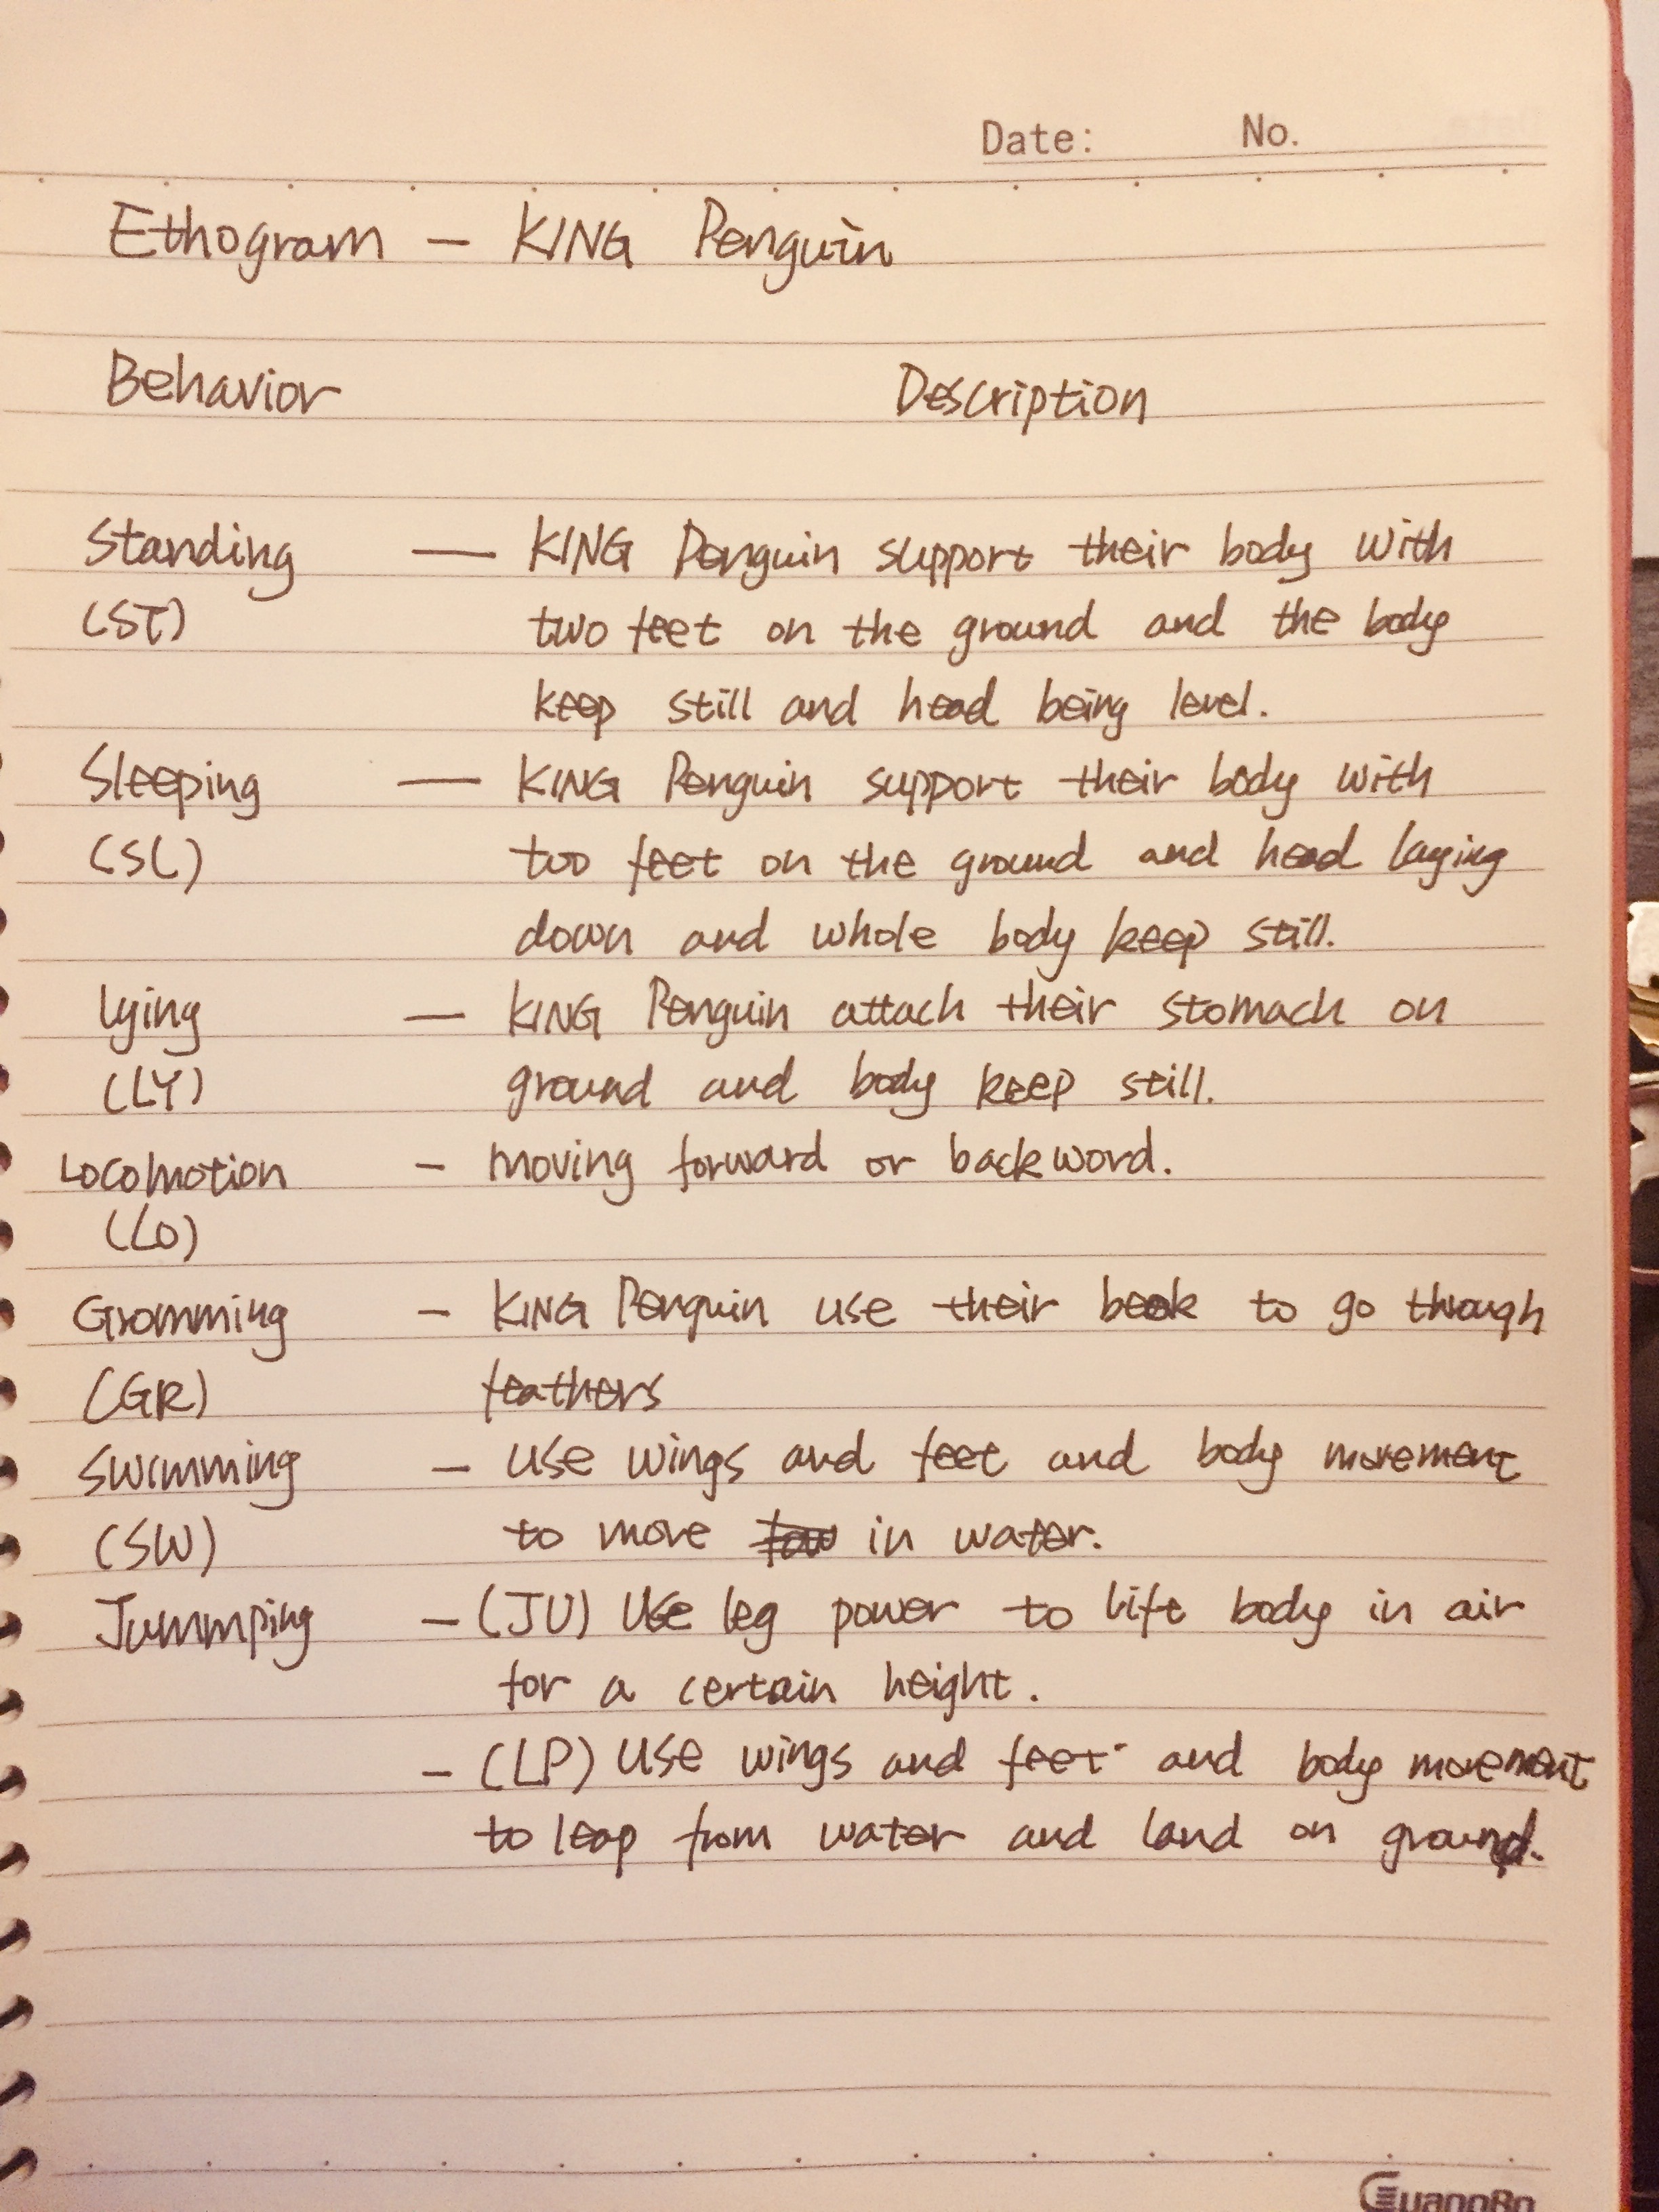 Date: No.
Ethogram — KING Penguin
Behavior Description
Standing — KING Penguin support their body with
(ST) two feet on the ground and the body
keep still and head being level.
Sleeping — KING Penguin support their body with
(SL) two feet on the ground and head laying
down and whole body keep still.
lying — KING Penguin attach their stomach on
(LY) ground and body keep still.
Locomotion - moving forward or backword.
(LO)
Gromming - KING Penguin use their beak to go though
(GR) feathers
Swimming - use wings and feet and body movement
(SW) to move in water.
Jummping - (JU) Use leg power to lift body in air
for a certain height.
- (LP) use wings and feet and body movement
to leap from water and land on ground.